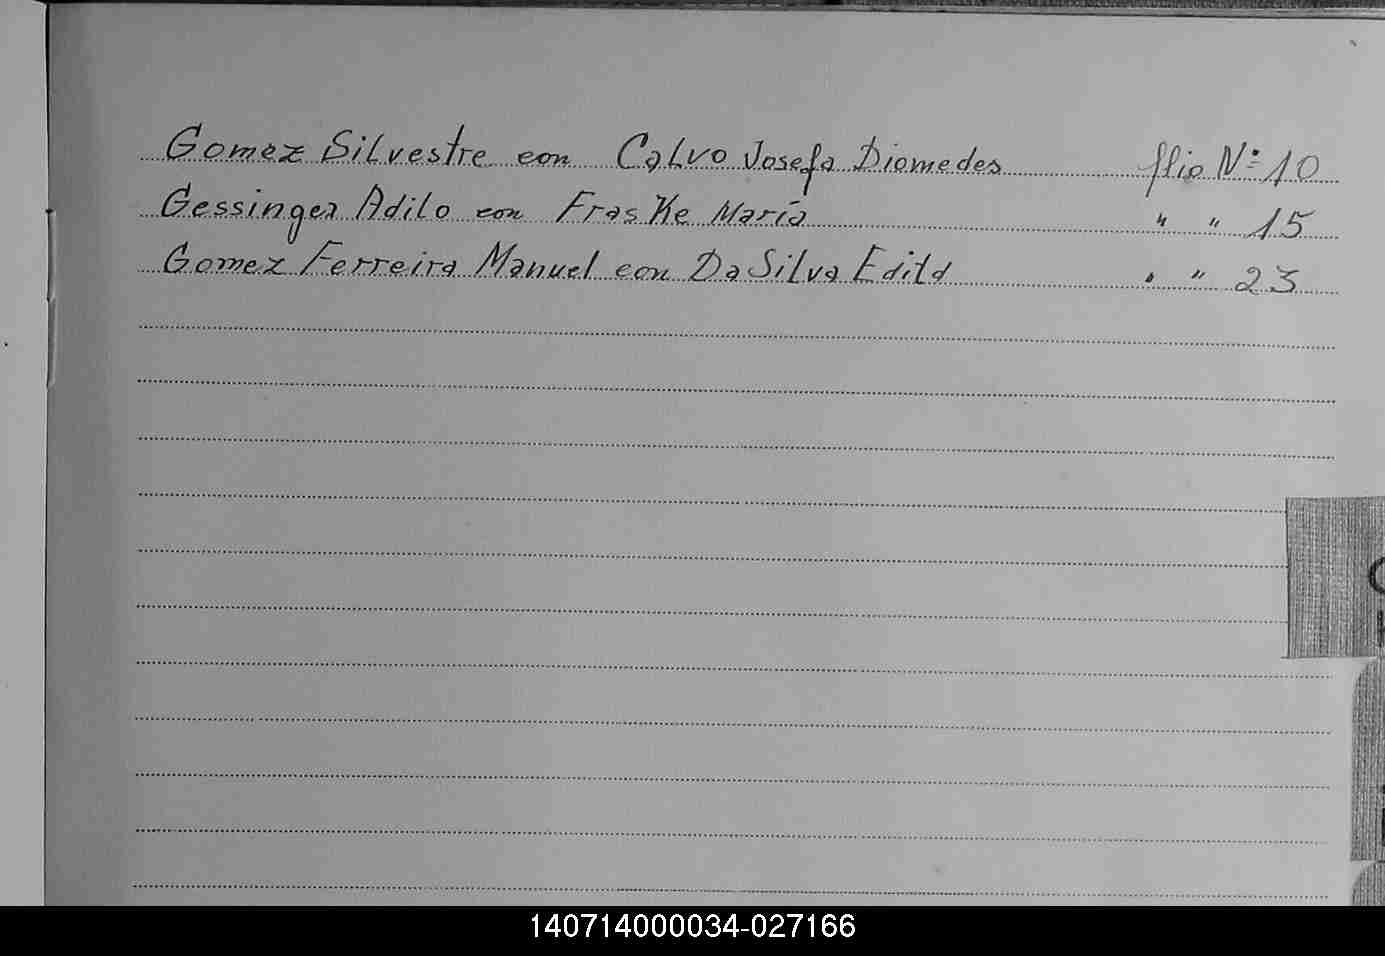 Gomez Silvestre con Calvo Josefa Diomedes flio Nº 10
Gessinger Adilo con Fraske María " " 15
Gomez Ferreira Manuel con Da Silva Edild " " 23
140714000034-027166